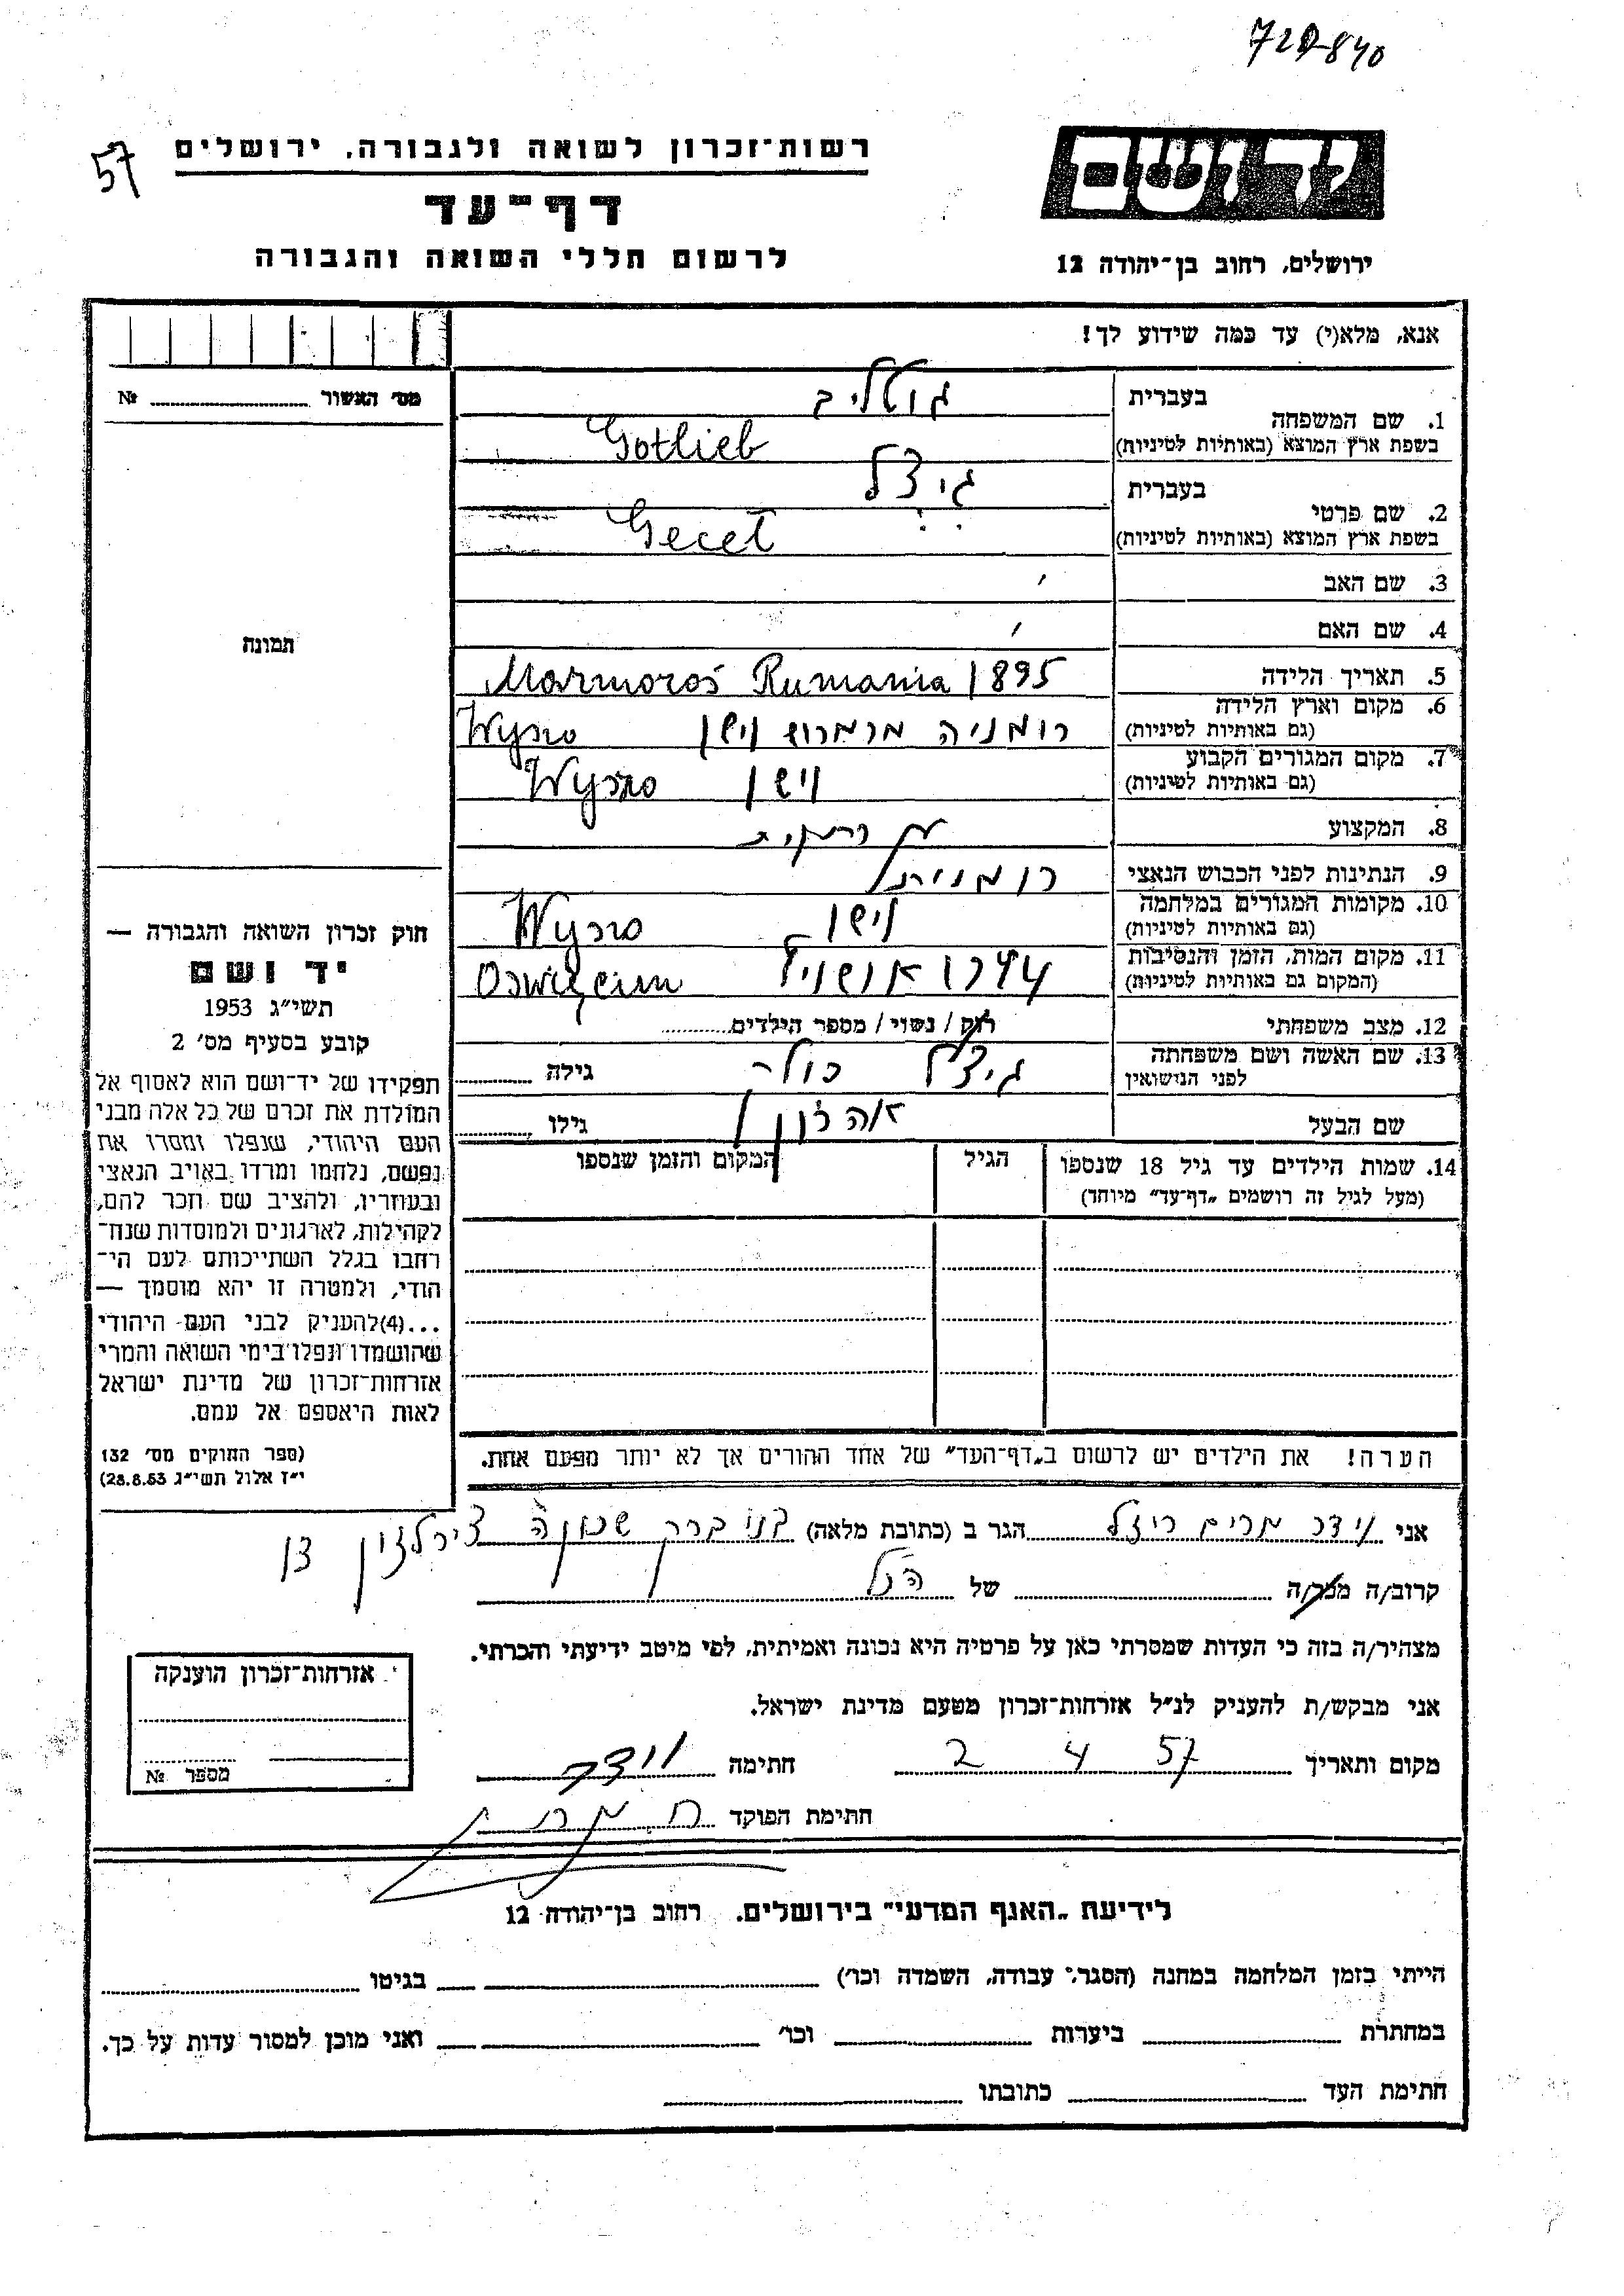 720840
57
רשות־זכרון לשואה ולגבורה, ירושלים
דף־עד
לרשום חללי השואה והגבורה
יד ושם
ירושלים, רחוב בן־יהודה 12
אנא, מלא(י) עד כמה שידוע לך!
מס׳ האשור № 
בעברית גוטליב
1. שם המשפחה
בשפת ארץ המוצא (באותיות לטיניות) Gotlieb
בעברית גיצל
2. שם פרטי
בשפת ארץ המוצא (באותיות לטיניות) Gecel
3. שם האב
4. שם האם
תמונה
5. תאריך הלידה 1895 Marmoroś Rumania
6. מקום וארץ הלידה
(גם באותיות לטיניות) רומניה מרמרוש וישו Wyszo
7. מקום המגורים הקבוע
(גם באותיות לטיניות) וישו Wyszo
8. המקצוע
9. הנתינות לפני הכבוש הנאצי רומנית
10. מקומות המגורים במלחמה
(גם באותיות לטיניות) וישו Wyszo
11. מקום המות, הזמן והנסיבות
(המקום גם באותיות לטיניות) 1944 אושויץ Oswięcim
12. מצב משפחתי רוק / נשוי / מספר הילדים
13. שם האשה ושם משפחתה
לפני הנישואין גיצל גילה
שם הבעל אהרון גילו
14. שמות הילדים עד גיל 18 שנספו הגיל המקום והזמן שנספו
(מעל לגיל זה רושמים „דף־עד״ מיוחד)
הערה! את הילדים יש לרשום ב„דף־העד״ של אחד ההורים אך לא יותר מפעם אחת.
חוק זכרון השואה והגבורה —
יד ושם
תשי״ג 1953
קובע בסעיף מס׳ 2
תפקידו של יד־ושם הוא לאסוף אל
המולדת את זכרם של כל אלה מבני
העם היהודי, שנפלו ומסרו את
נפשם, נלחמו ומרדו באויב הנאצי
ובעוזריו, ולהציב שם וזכר להם,
לקהילות, לארגונים ולמוסדות שנח־
רחבו בגלל השתייכותם לעם הי־
הודי, ולמטרה זו יהא מוסמך —
...(4) להעניק לבני העם היהודי
שהושמדו ונפלו בימי השואה והמרי
אזרחות־זכרון של מדינת ישראל
לאות היאספם אל עמם.
(ספר החוקים מס׳ 132
י״ז אלול תשי״ג 28.8.53)
אני וידר מרים רייזל הגר ב (כתובת מלאה) בני ברק שכונה
קרוב/ה מכר/ה של הנ״ל
מצהיר/ה בזה כי העדות שמסרתי כאן על פרטיה היא נכונה ואמיתית, לפי מיטב ידיעתי והכרתי.
אני מבקש/ת להעניק לנ״ל אזרחות־זכרון מטעם מדינת ישראל.
מקום ותאריך 57 4 2 חתימה וידר
חתימת הפוקד
אזרחות־זכרון הוענקה
מספר №
לידיעת „האגף המדעי״ בירושלים, רחוב בן־יהודה 12
הייתי בזמן המלחמה במחנה (הסגר, עבודה, השמדה וכו׳) בגיטו
במחתרת ביערות וכו׳ ואני מוכן למסור עדות על כך.
חתימת העד כתובתו